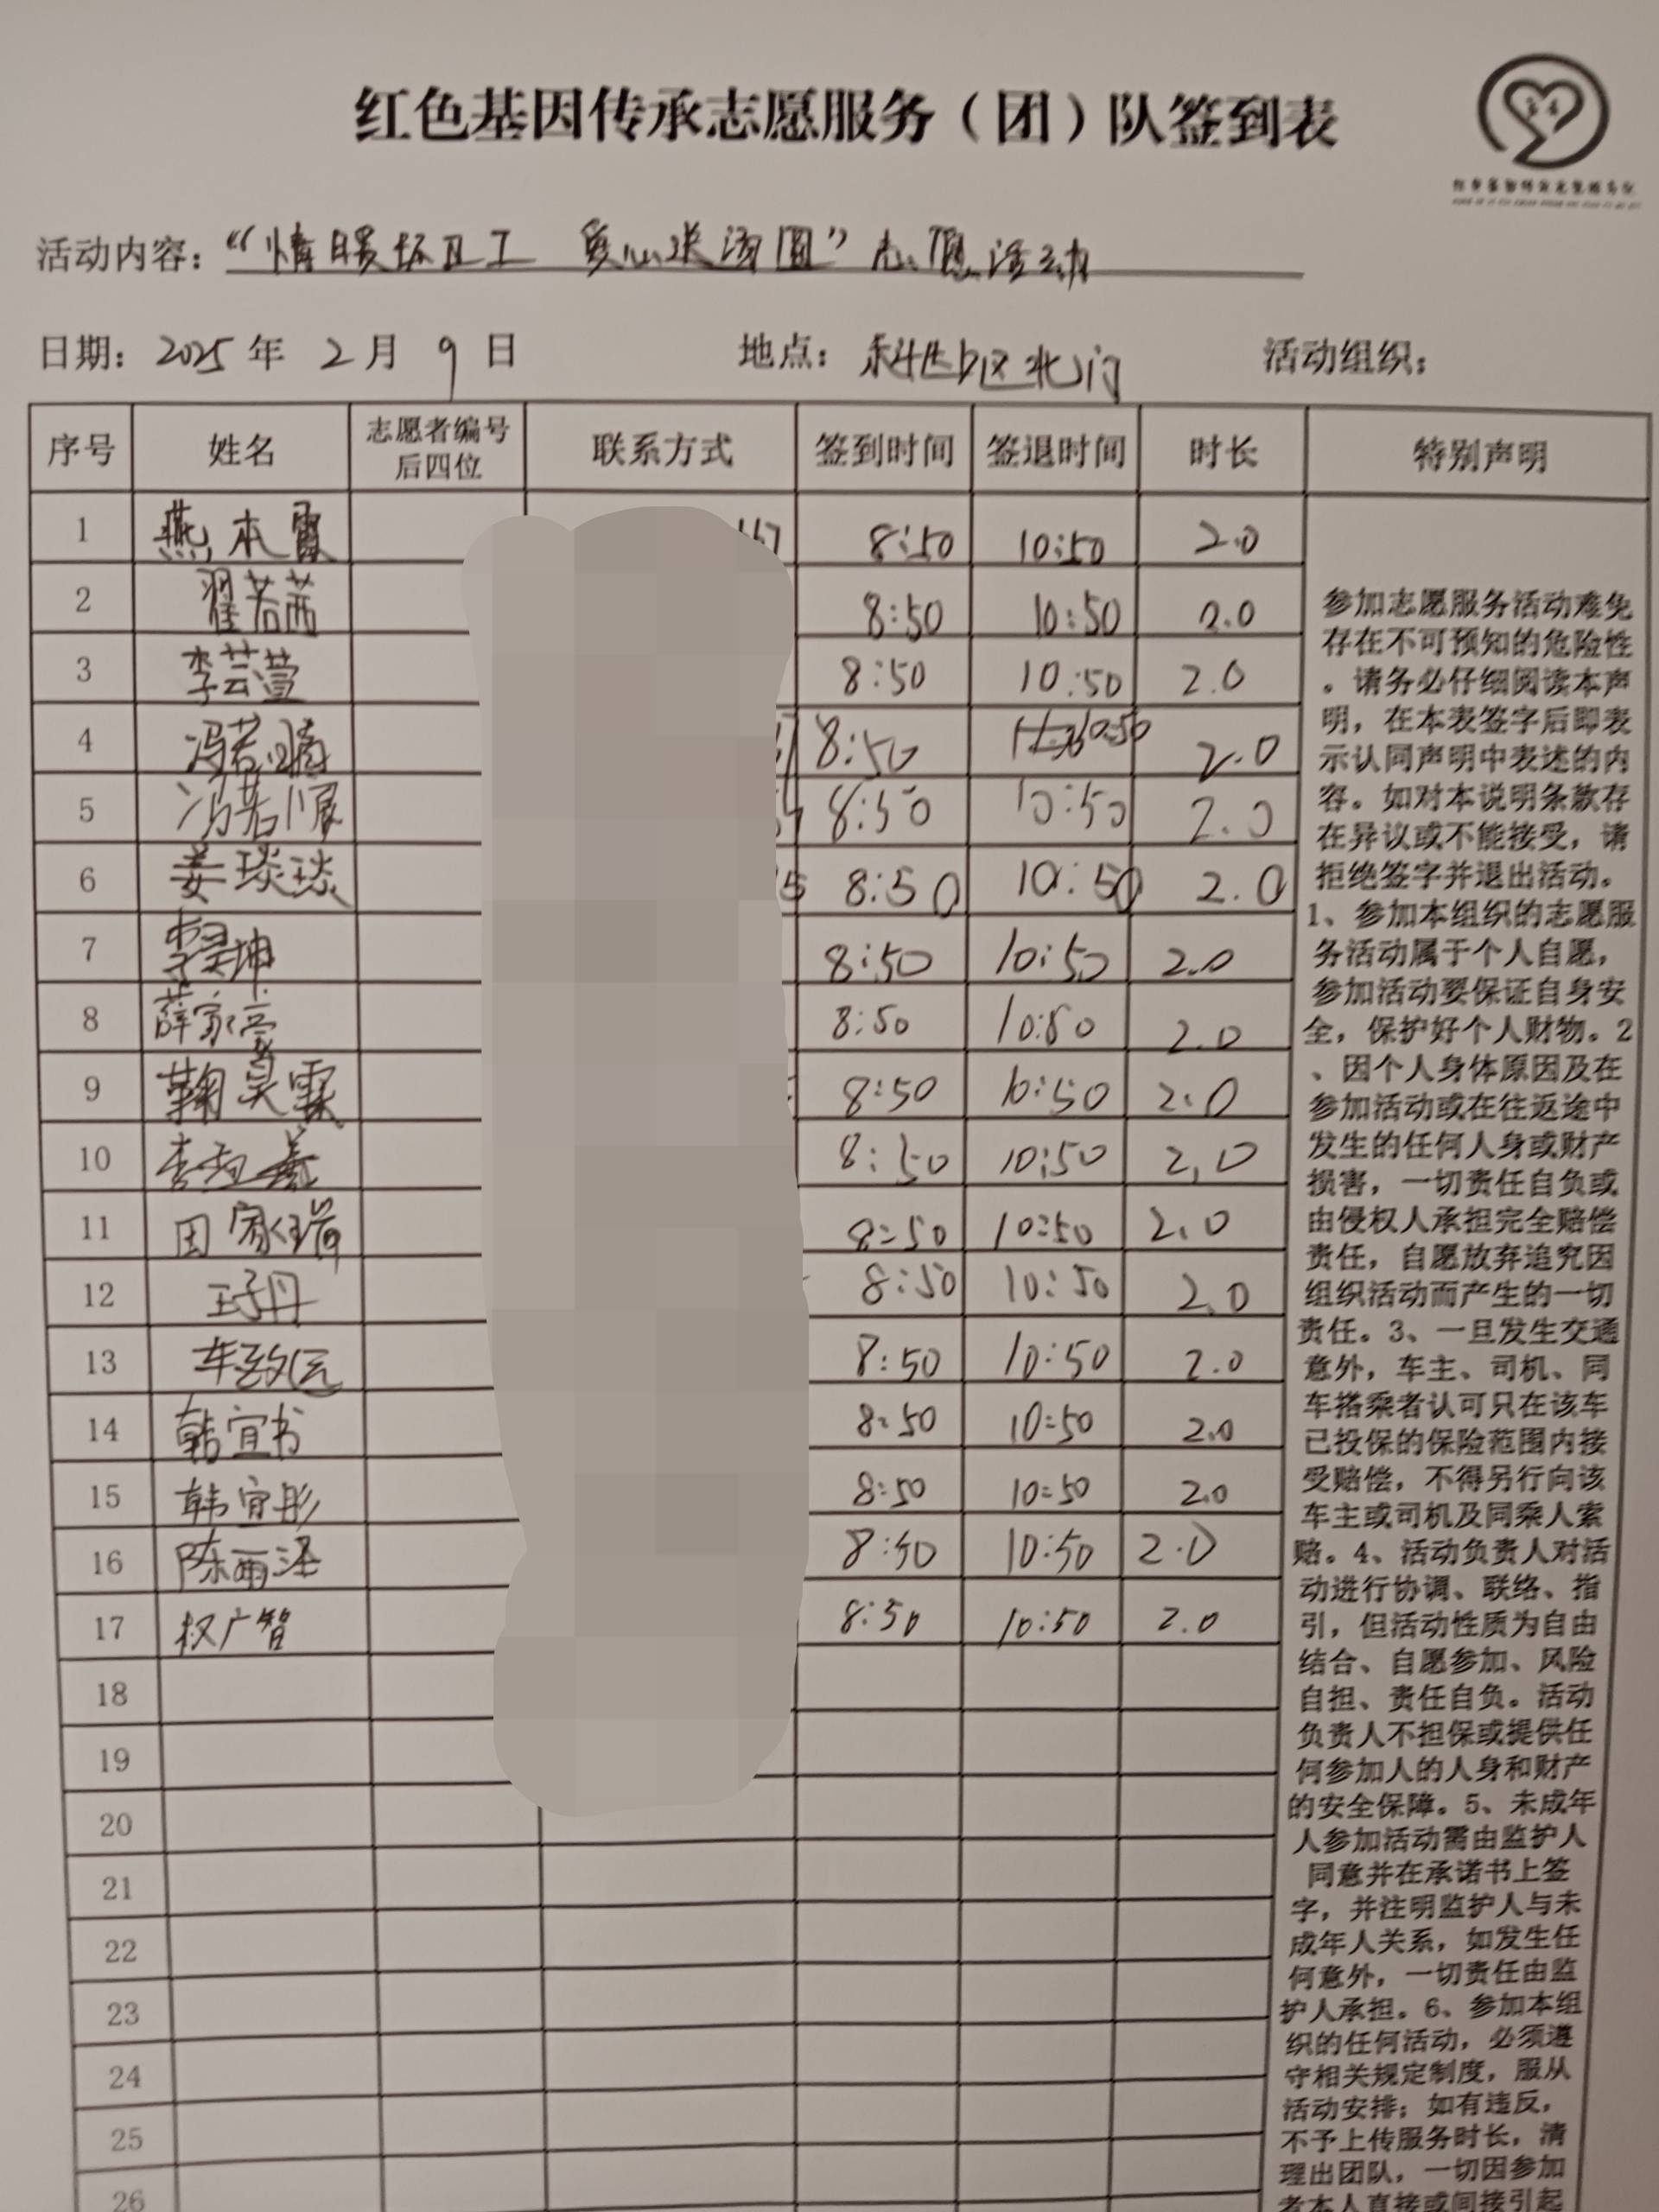 红色基因传承志愿服务（团）队签到表
活动内容：“情暖环卫工 爱心送汤圆”志愿活动
日期：2025年 2月 9日 地点：科世小区北门 活动组织：
序号 姓名 志愿者编号后四位 联系方式 签到时间 签退时间 时长 特别声明
1 燕本霞 8:50 10:50 2.0
2 翟若茜 8:50 10:50 2.0
3 李芸萱 8:50 10:50 2.0
4 冯若 8:50 10:50 2.0
5 冯若 8:50 10:50 2.0
6 姜琰琰 8:50 10:50 2.0
7 李昊坤 8:50 10:50 2.0
8 薛家豪 8:50 10:50 2.0
9 鞠昊霖 8:50 10:50 2.0
10 李 8:50 10:50 2.0
11 田家瑞 8:50 10:50 2.0
12 王子丹 8:50 10:50 2.0
13 车致远 8:50 10:50 2.0
14 韩宜书 8:50 10:50 2.0
15 韩宜彤 8:50 10:50 2.0
16 陈雨泽 8:50 10:50 2.0
17 权广智 8:50 10:50 2.0
18
19
20
21
22
23
24
25
26
参加志愿服务活动难免
存在不可预知的危险性
。请务必仔细阅读本声
明，在本表签字后即表
示认同声明中表述的内
容。如对本说明条款存
在异议或不能接受，请
拒绝签字并退出活动。
1、参加本组织的志愿服
务活动属于个人自愿，
参加活动要保证自身安
全，保护好个人财物。2
、因个人身体原因及在
参加活动或在往返途中
发生的任何人身或财产
损害，一切责任自负或
由侵权人承担完全赔偿
责任，自愿放弃追究因
组织活动而产生的一切
责任。3、一旦发生交通
意外，车主、司机、同
车搭乘者认可只在该车
已投保的保险范围内接
受赔偿，不得另行向该
车主或司机及同乘人索
赔。4、活动负责人对活
动进行协调、联络、指
引，但活动性质为自由
结合、自愿参加、风险
自担、责任自负。活动
负责人不担保或提供任
何参加人的人身和财产
的安全保障。5、未成年
人参加活动需由监护人
同意并在承诺书上签
字，并注明监护人与未
成年人关系，如发生任
何意外，一切责任由监
护人承担。6、参加本组
织的任何活动，必须遵
守相关规定制度，服从
活动安排；如有违反，
不予上传服务时长，清
理出团队，一切因参加
者本人直接或间接引起